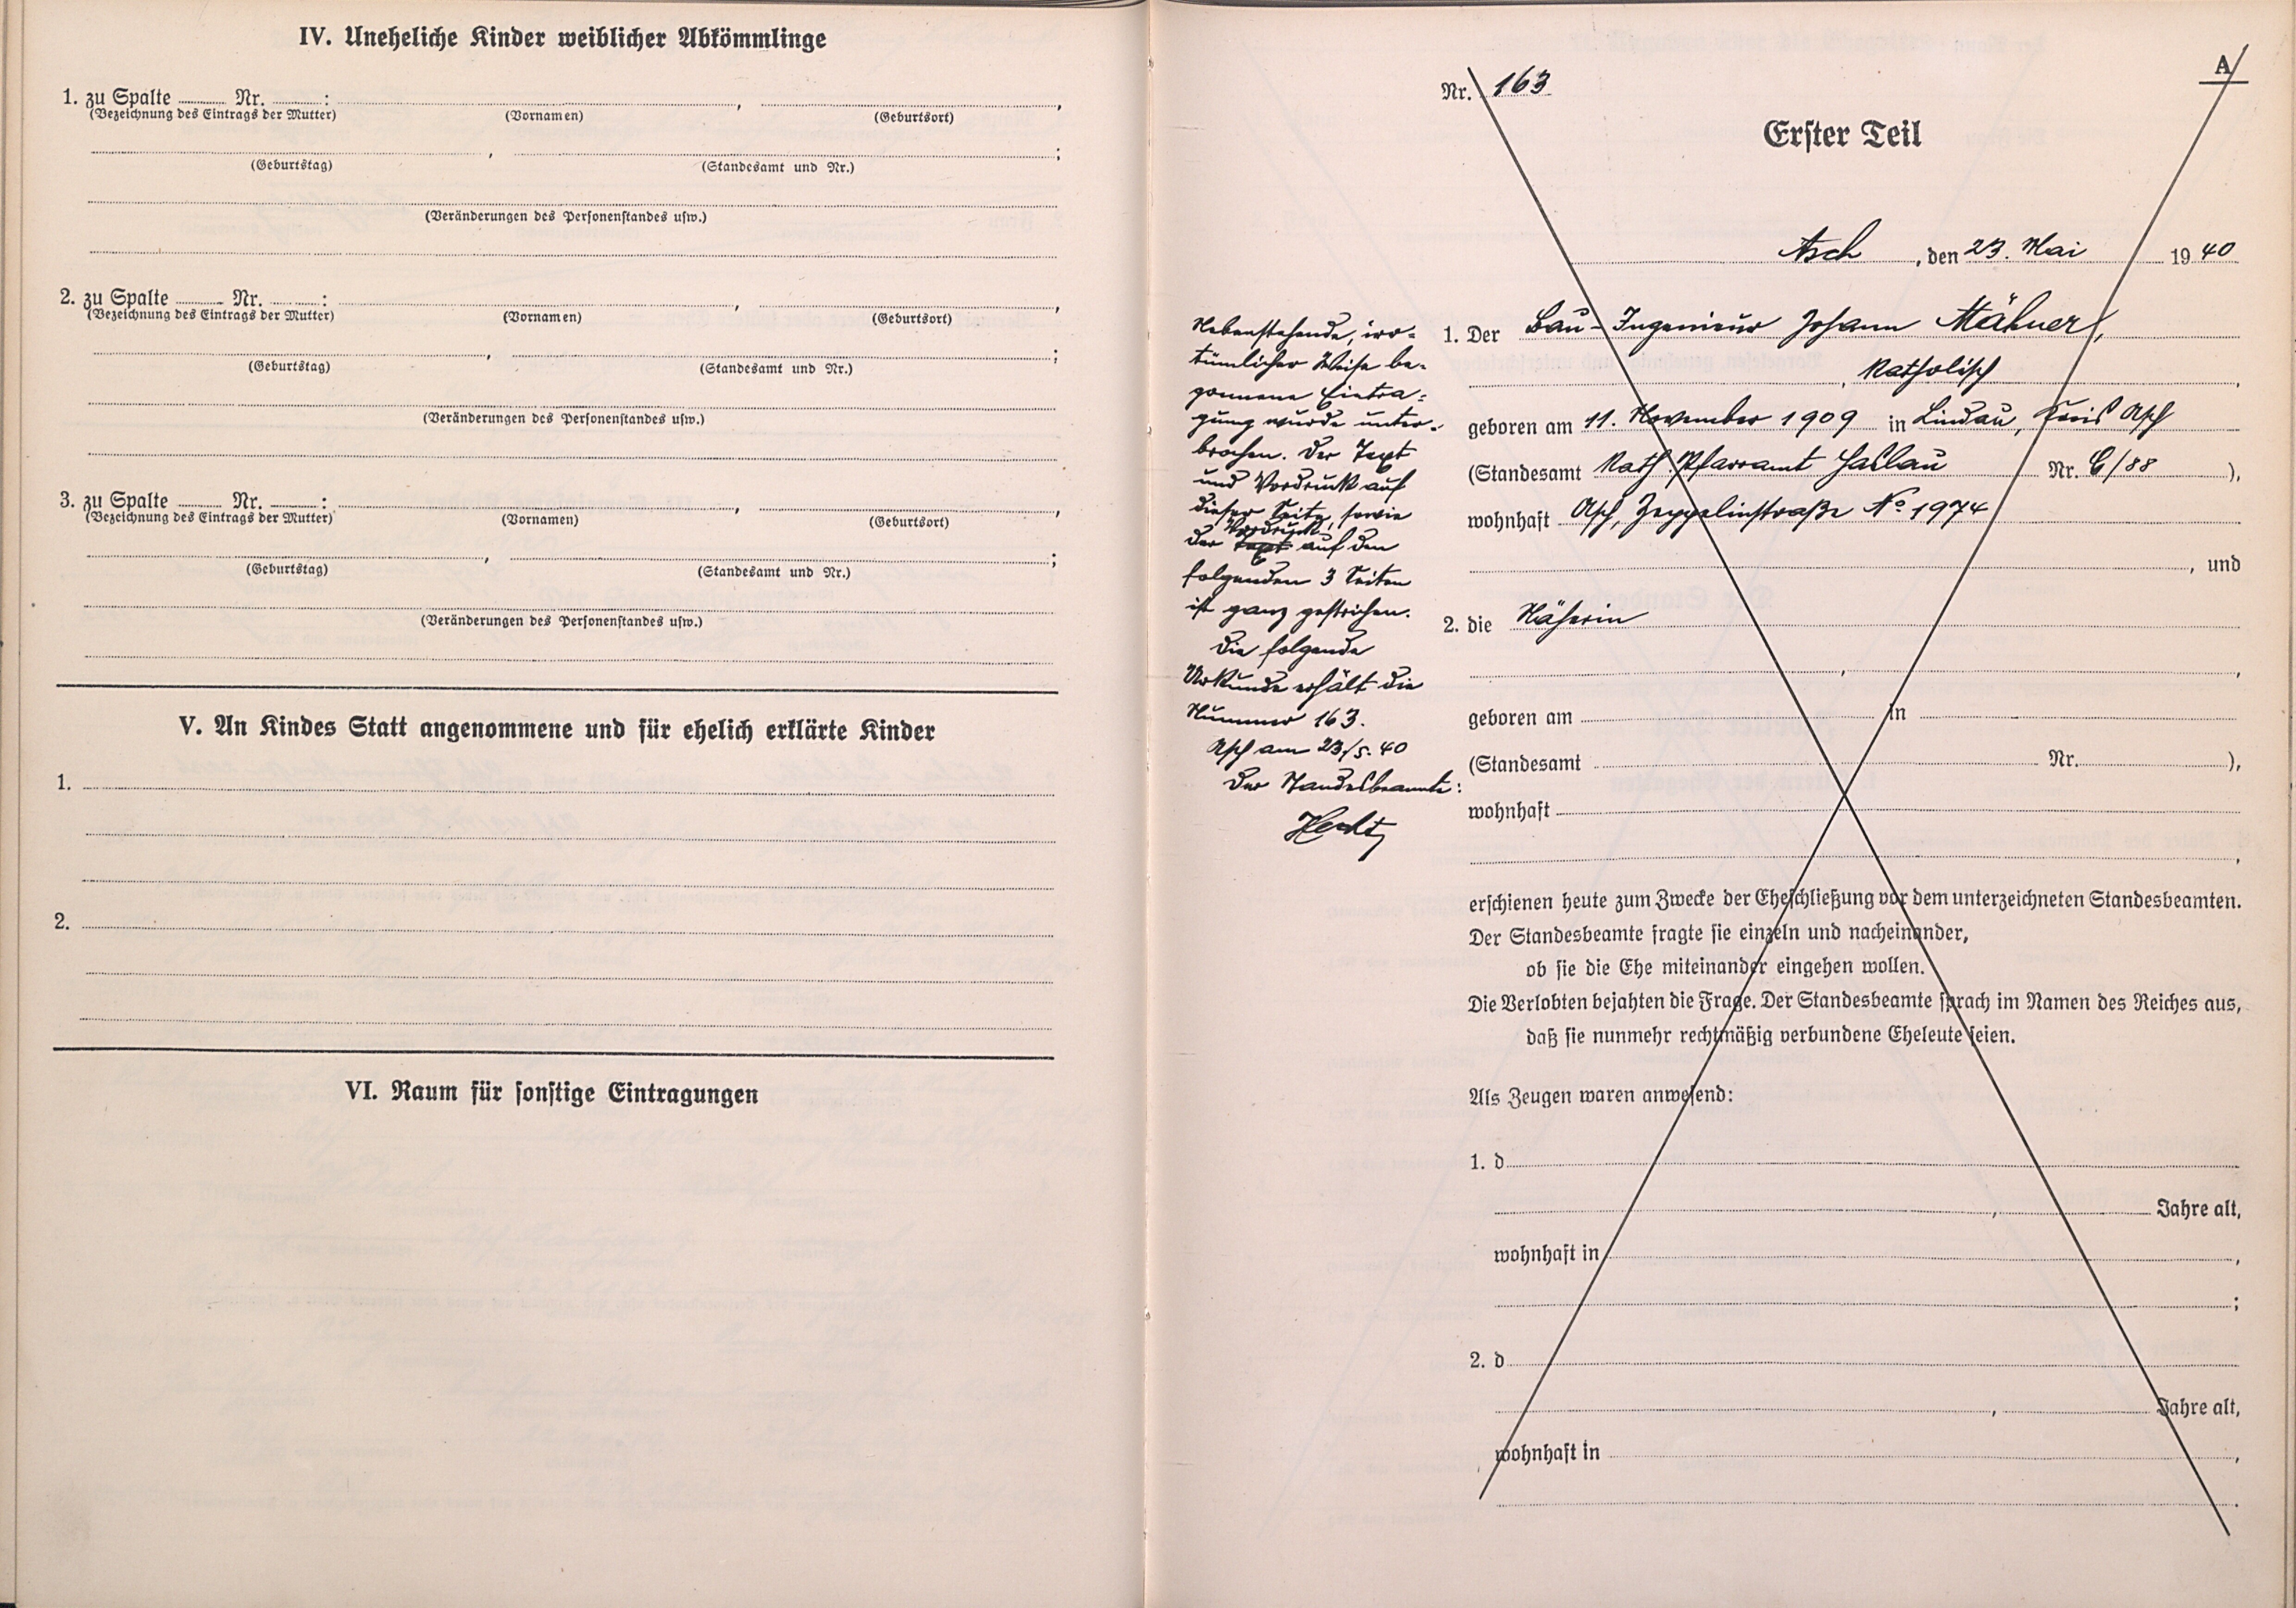 IV. Uneheliche Kinder weiblicher Abkömmlinge
1. zu Spalte ........ Nr. ........ : ........ , ........ ,
(Bezeichnung des Eintrags der Mutter) (Vornamen) (Geburtsort)
........ , ........ ;
(Geburtstag) (Standesamt und Nr.)
(Veränderungen des Personenstandes usw.)
2. zu Spalte ........ Nr. ........ : ........ , ........ ,
(Bezeichnung des Eintrags der Mutter) (Vornamen) (Geburtsort)
........ , ........ ;
(Geburtstag) (Standesamt und Nr.)
(Veränderungen des Personenstandes usw.)
3. zu Spalte ........ Nr. ........ : ........ , ........ ,
(Bezeichnung des Eintrags der Mutter) (Vornamen) (Geburtsort)
........ , ........ ;
(Geburtstag) (Standesamt und Nr.)
(Veränderungen des Personenstandes usw.)
V. An Kindes Statt angenommene und für ehelich erklärte Kinder
1.
2.
VI. Raum für sonstige Eintragungen
A
Nr. 163
Erster Teil
Asch, den 23. Mai 1940
Nebenstehende, irr=
tümlicher Weise be=
gonnene Eintra=
gung wurde unter=
brochen. Der Text
und Vordruck auf
dieser Seite, sowie
Vordruck
der Text auf den
folgenden 3 Seiten
ist ganz gestrichen.
Die folgende
Urkunde erhält die
Nummer 163.
Asch am 23/5. 40
Der Standesbeamte:
1. Der Bau-Ingenieur Johann Mähner,
, Katholisch ,
geboren am 11. November 1909 in Lindau, Kreis Asch
(Standesamt Kath. Pfarramt Haslau Nr. C/88 ),
wohnhaft Asch, Zeppelinstraße No 1974
, und
2. die Näherin
, ,
geboren am ........ in ........
(Standesamt ........ Nr. ........ ),
wohnhaft ........
,
erschienen heute zum Zwecke der Eheschließung vor dem unterzeichneten Standesbeamten.
Der Standesbeamte fragte sie einzeln und nacheinander,
ob sie die Ehe miteinander eingehen wollen.
Die Verlobten bejahten die Frage. Der Standesbeamte sprach im Namen des Reiches aus,
daß sie nunmehr rechtmäßig verbundene Eheleute seien.
Als Zeugen waren anwesend:
1. d
, ........ Jahre alt,
wohnhaft in ........ ,
;
2. d
, ........ Jahre alt,
wohnhaft in ........ ,
.